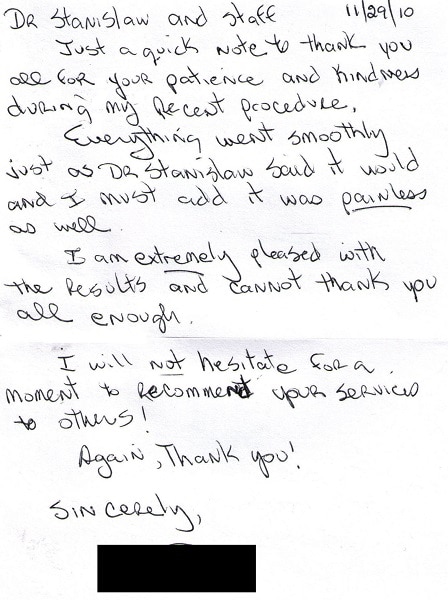 Dr Stanislaw and staff 11/29/10
Just a quick note to thank you
all for your patience and kindness
during my recent procedure.
Everything went smoothly
just as Dr Stanislaw said it would
and I must add it was painless
as well.
I am extremely pleased with
the results and cannot thank you
all enough.
I will not hesitate for a
moment to recommend your services
to others!
Again, Thank you!
Sincerely,